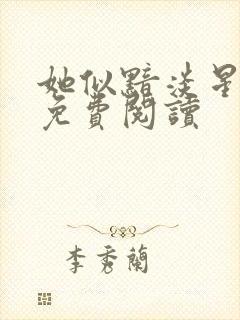 她似黯淡星
免費閱讀
李秀蘭